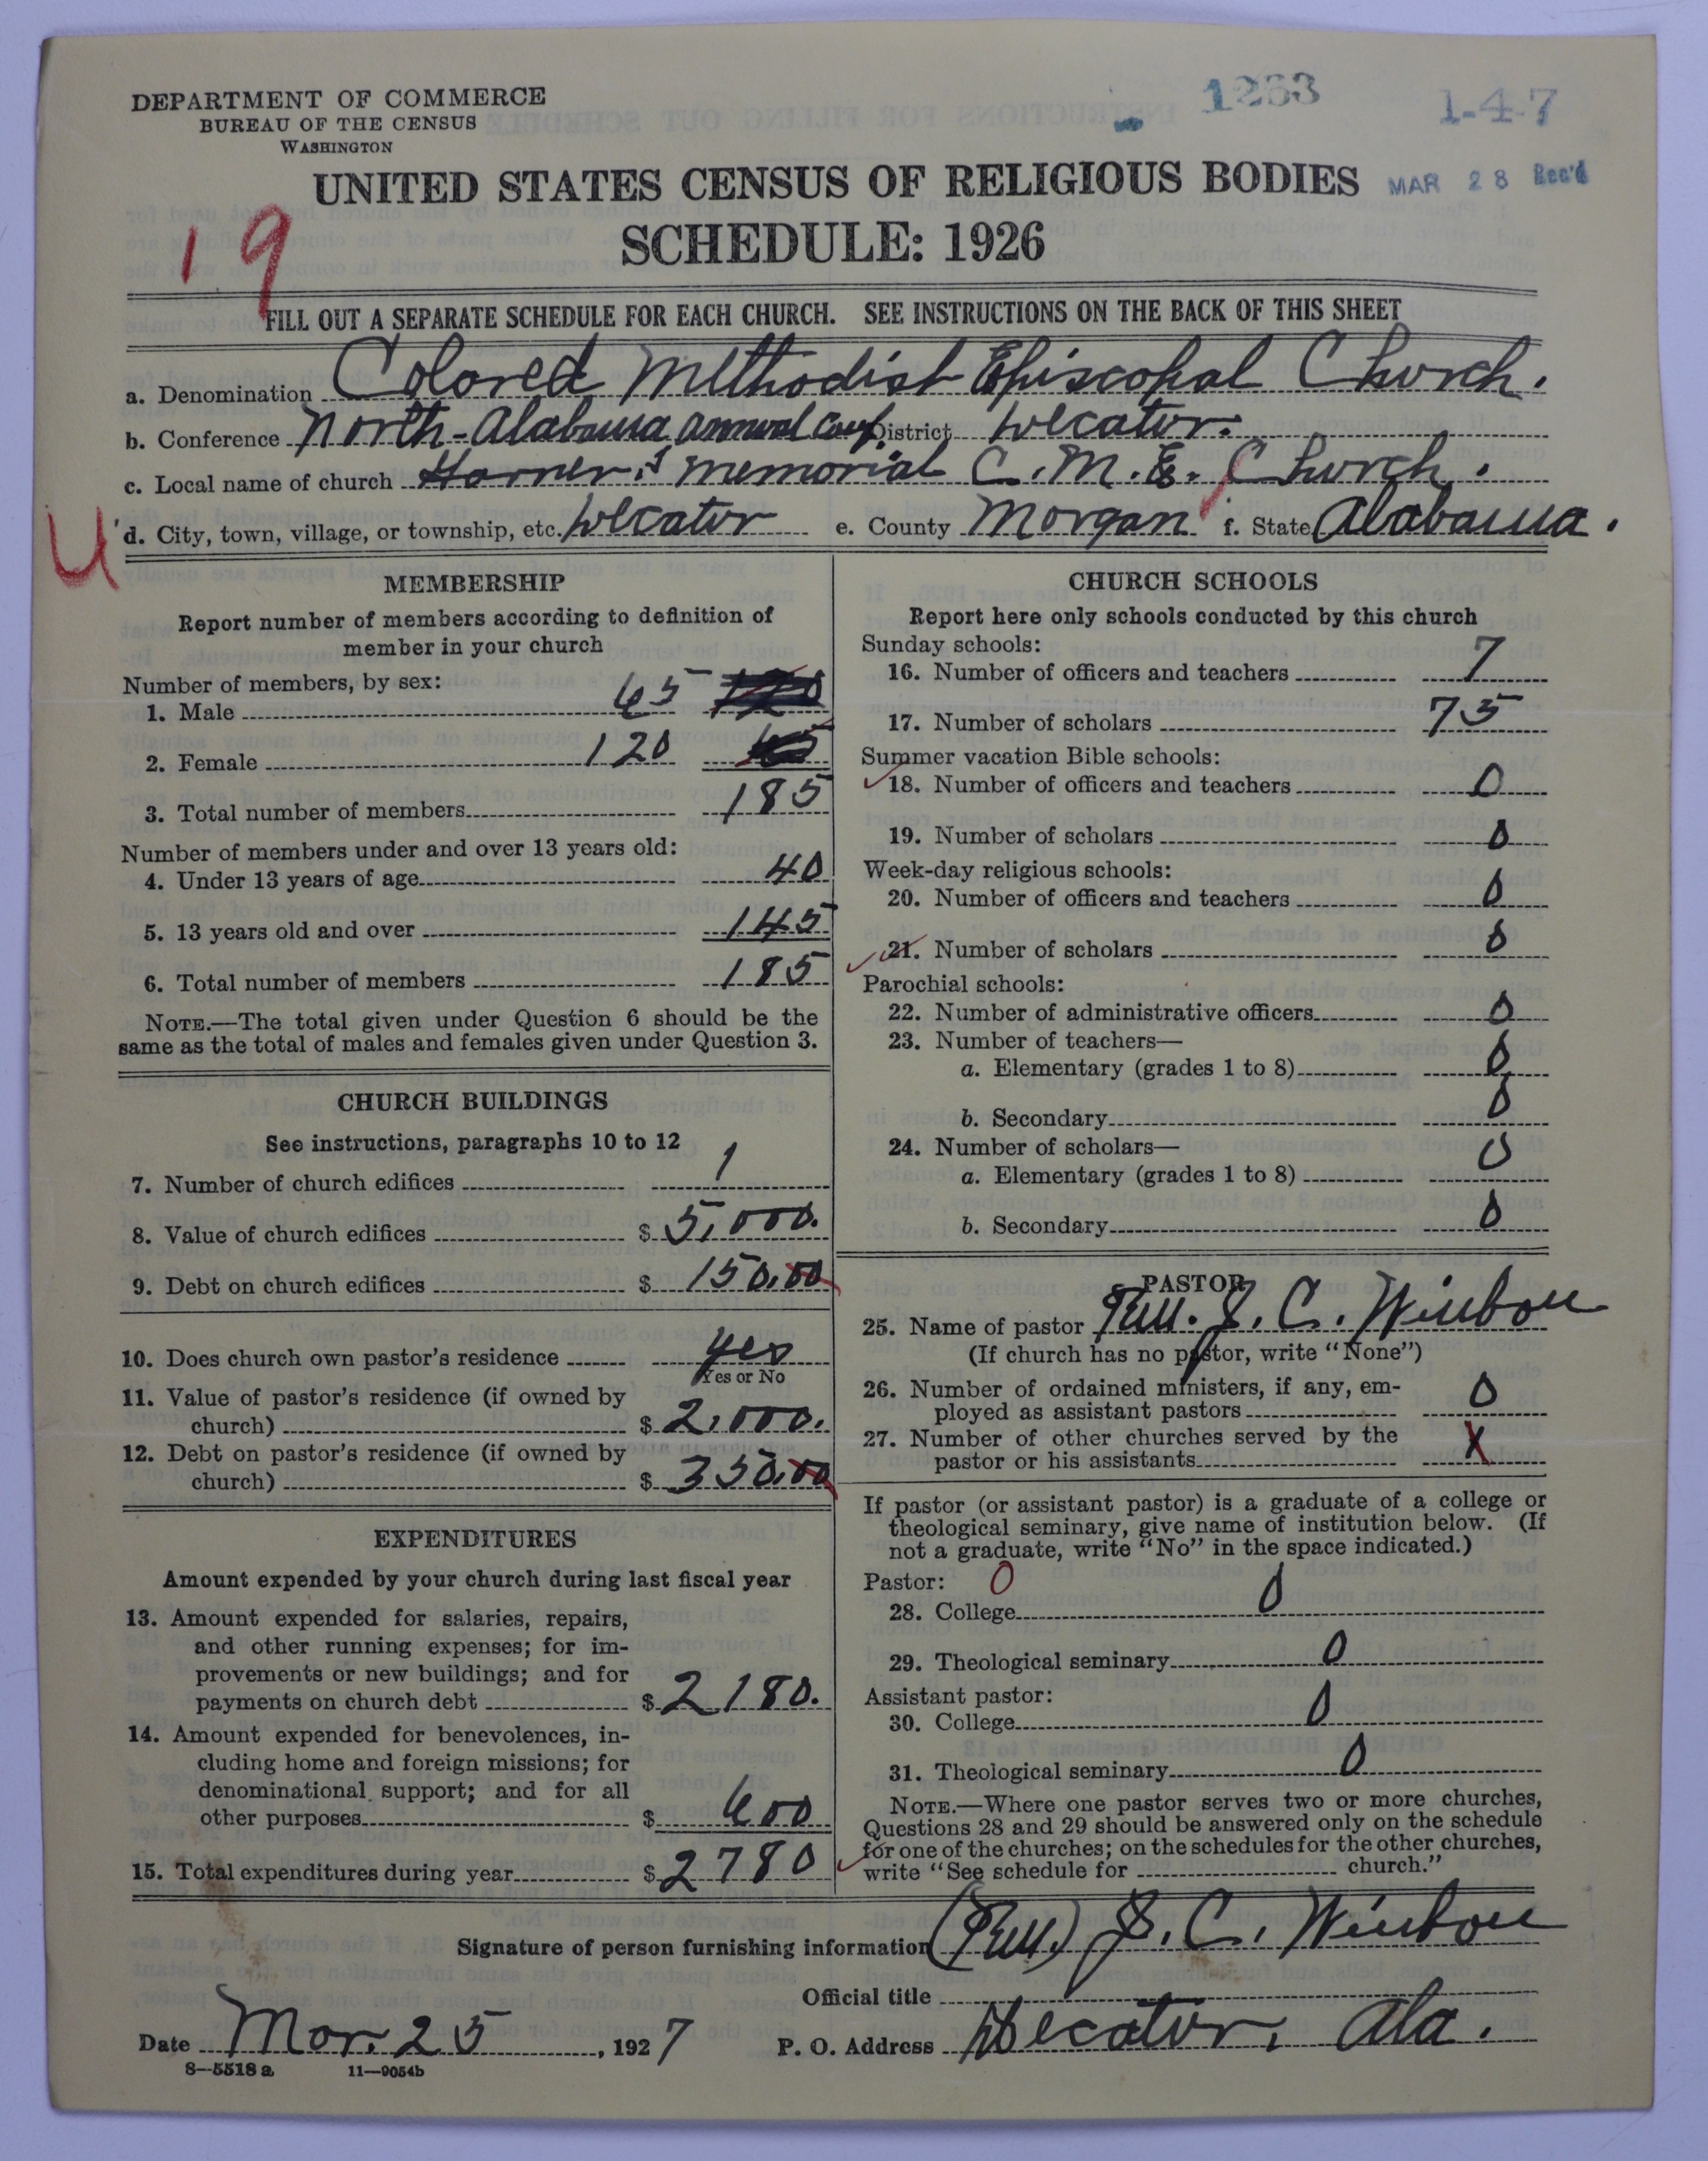 DEPARTMENT OF COMMERCE
BUREAU OF THE CENSUS
WASHINGTON
1263
1-4-7
UNITED STATES CENSUS OF RELIGIOUS BODIES
MAR 28 Rec'd
SCHEDULE: 1926
19
FILL OUT A SEPARATE SCHEDULE FOR EACH CHURCH. SEE INSTRUCTIONS ON THE BACK OF THIS SHEET
a. Denomination Colored Methodist Episcopal Church.
b. Conference North-Alabama Annual Conf. District Decatur.
c. Local name of church Horner's Memorial C.M.E. Church.
U
d. City, town, village, or township, etc. Decatur e. County Morgan f. State Alabama.
MEMBERSHIP
Report number of members according to definition of
member in your church
Number of members, by sex:
1. Male 65 120
2. Female 120 65
3. Total number of members 185
Number of members under and over 13 years old:
4. Under 13 years of age 40
5. 13 years old and over 145
6. Total number of members 185
NOTE.—The total given under Question 6 should be the
same as the total of males and females given under Question 3.
CHURCH BUILDINGS
See instructions, paragraphs 10 to 12
7. Number of church edifices 1
8. Value of church edifices $ 5,000.
9. Debt on church edifices $ 150.00
10. Does church own pastor's residence yes
Yes or No
11. Value of pastor's residence (if owned by
church) $ 2,000.
12. Debt on pastor's residence (if owned by
church) $ 350.00
EXPENDITURES
Amount expended by your church during last fiscal year
13. Amount expended for salaries, repairs,
and other running expenses; for im-
provements or new buildings; and for
payments on church debt $ 2180.
14. Amount expended for benevolences, in-
cluding home and foreign missions; for
denominational support; and for all
other purposes $ 600
15. Total expenditures during year $ 2780
CHURCH SCHOOLS
Report here only schools conducted by this church
Sunday schools:
16. Number of officers and teachers 7
17. Number of scholars 75
Summer vacation Bible schools:
18. Number of officers and teachers 0
19. Number of scholars 0
Week-day religious schools:
20. Number of officers and teachers 0
21. Number of scholars 0
Parochial schools:
22. Number of administrative officers 0
23. Number of teachers—
a. Elementary (grades 1 to 8) 0
b. Secondary 0
24. Number of scholars—
a. Elementary (grades 1 to 8) 0
b. Secondary 0
PASTOR
25. Name of pastor Rev. J. C. Winbon
(If church has no pastor, write "None")
26. Number of ordained ministers, if any, em-
ployed as assistant pastors 0
27. Number of other churches served by the
pastor or his assistants X
If pastor (or assistant pastor) is a graduate of a college or
theological seminary, give name of institution below. (If
not a graduate, write "No" in the space indicated.)
Pastor: 0
28. College 0
29. Theological seminary 0
Assistant pastor:
30. College 0
31. Theological seminary 0
NOTE.—Where one pastor serves two or more churches,
Questions 28 and 29 should be answered only on the schedule
for one of the churches; on the schedules for the other churches,
write "See schedule for church."
Signature of person furnishing information (Rev.) J. C. Winbon
Official title
Date Mar. 25, 1927 P. O. Address Decatur, Ala.
8—5518 a 11—9054b